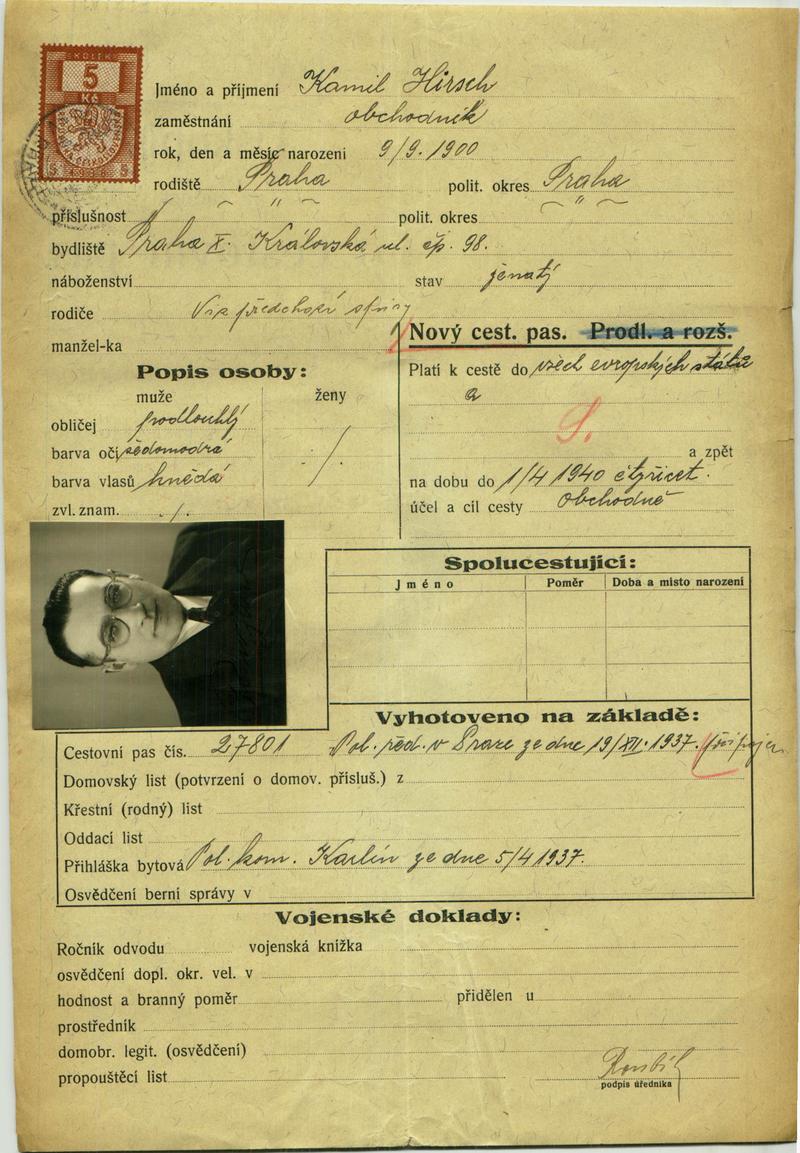 KOLEK
5
Kč
Jméno a příjmení Kamil Hirsch
zaměstnání obchodník
rok, den a měsíc narození 9/9. 1900
rodiště Praha polit. okres Praha
příslušnost ~ " ~ polit. okres ~ " ~
bydliště Praha X. Královská ul. čp. 98.
náboženství stav ženatý
rodiče Viz předchozí spisy
manžel-ka
Nový cest. pas. Prodl. a rozš.
Platí k cestě do všech evropských států
a
S.
a zpět
na dobu do 1/4 1940 čtyřicet.
účel a cíl cesty Obchodně
Popis osoby:
muže ženy
obličej podlouhlý
barva očí šedomodrá
barva vlasů hnědá
zvl. znam. ./.
./.
Spolucestující:
Jméno Poměr Doba a místo narození
Vyhotoveno na základě:
Cestovní pas čís. 27801 Pol. řed. v Praze ze dne 19/XII. 1937.
Domovský list (potvrzení o domov. přísluš.) z
Křestní (rodný) list
Oddací list
Přihláška bytová Pol. kom. Karlín ze dne 5/4 1937.
Osvědčení berní správy v
Vojenské doklady:
Ročník odvodu vojenská knížka
osvědčení dopl. okr. vel. v
hodnost a branný poměr přidělen u
prostředník
domobr. legit. (osvědčení)
propouštěcí list
podpis úředníka